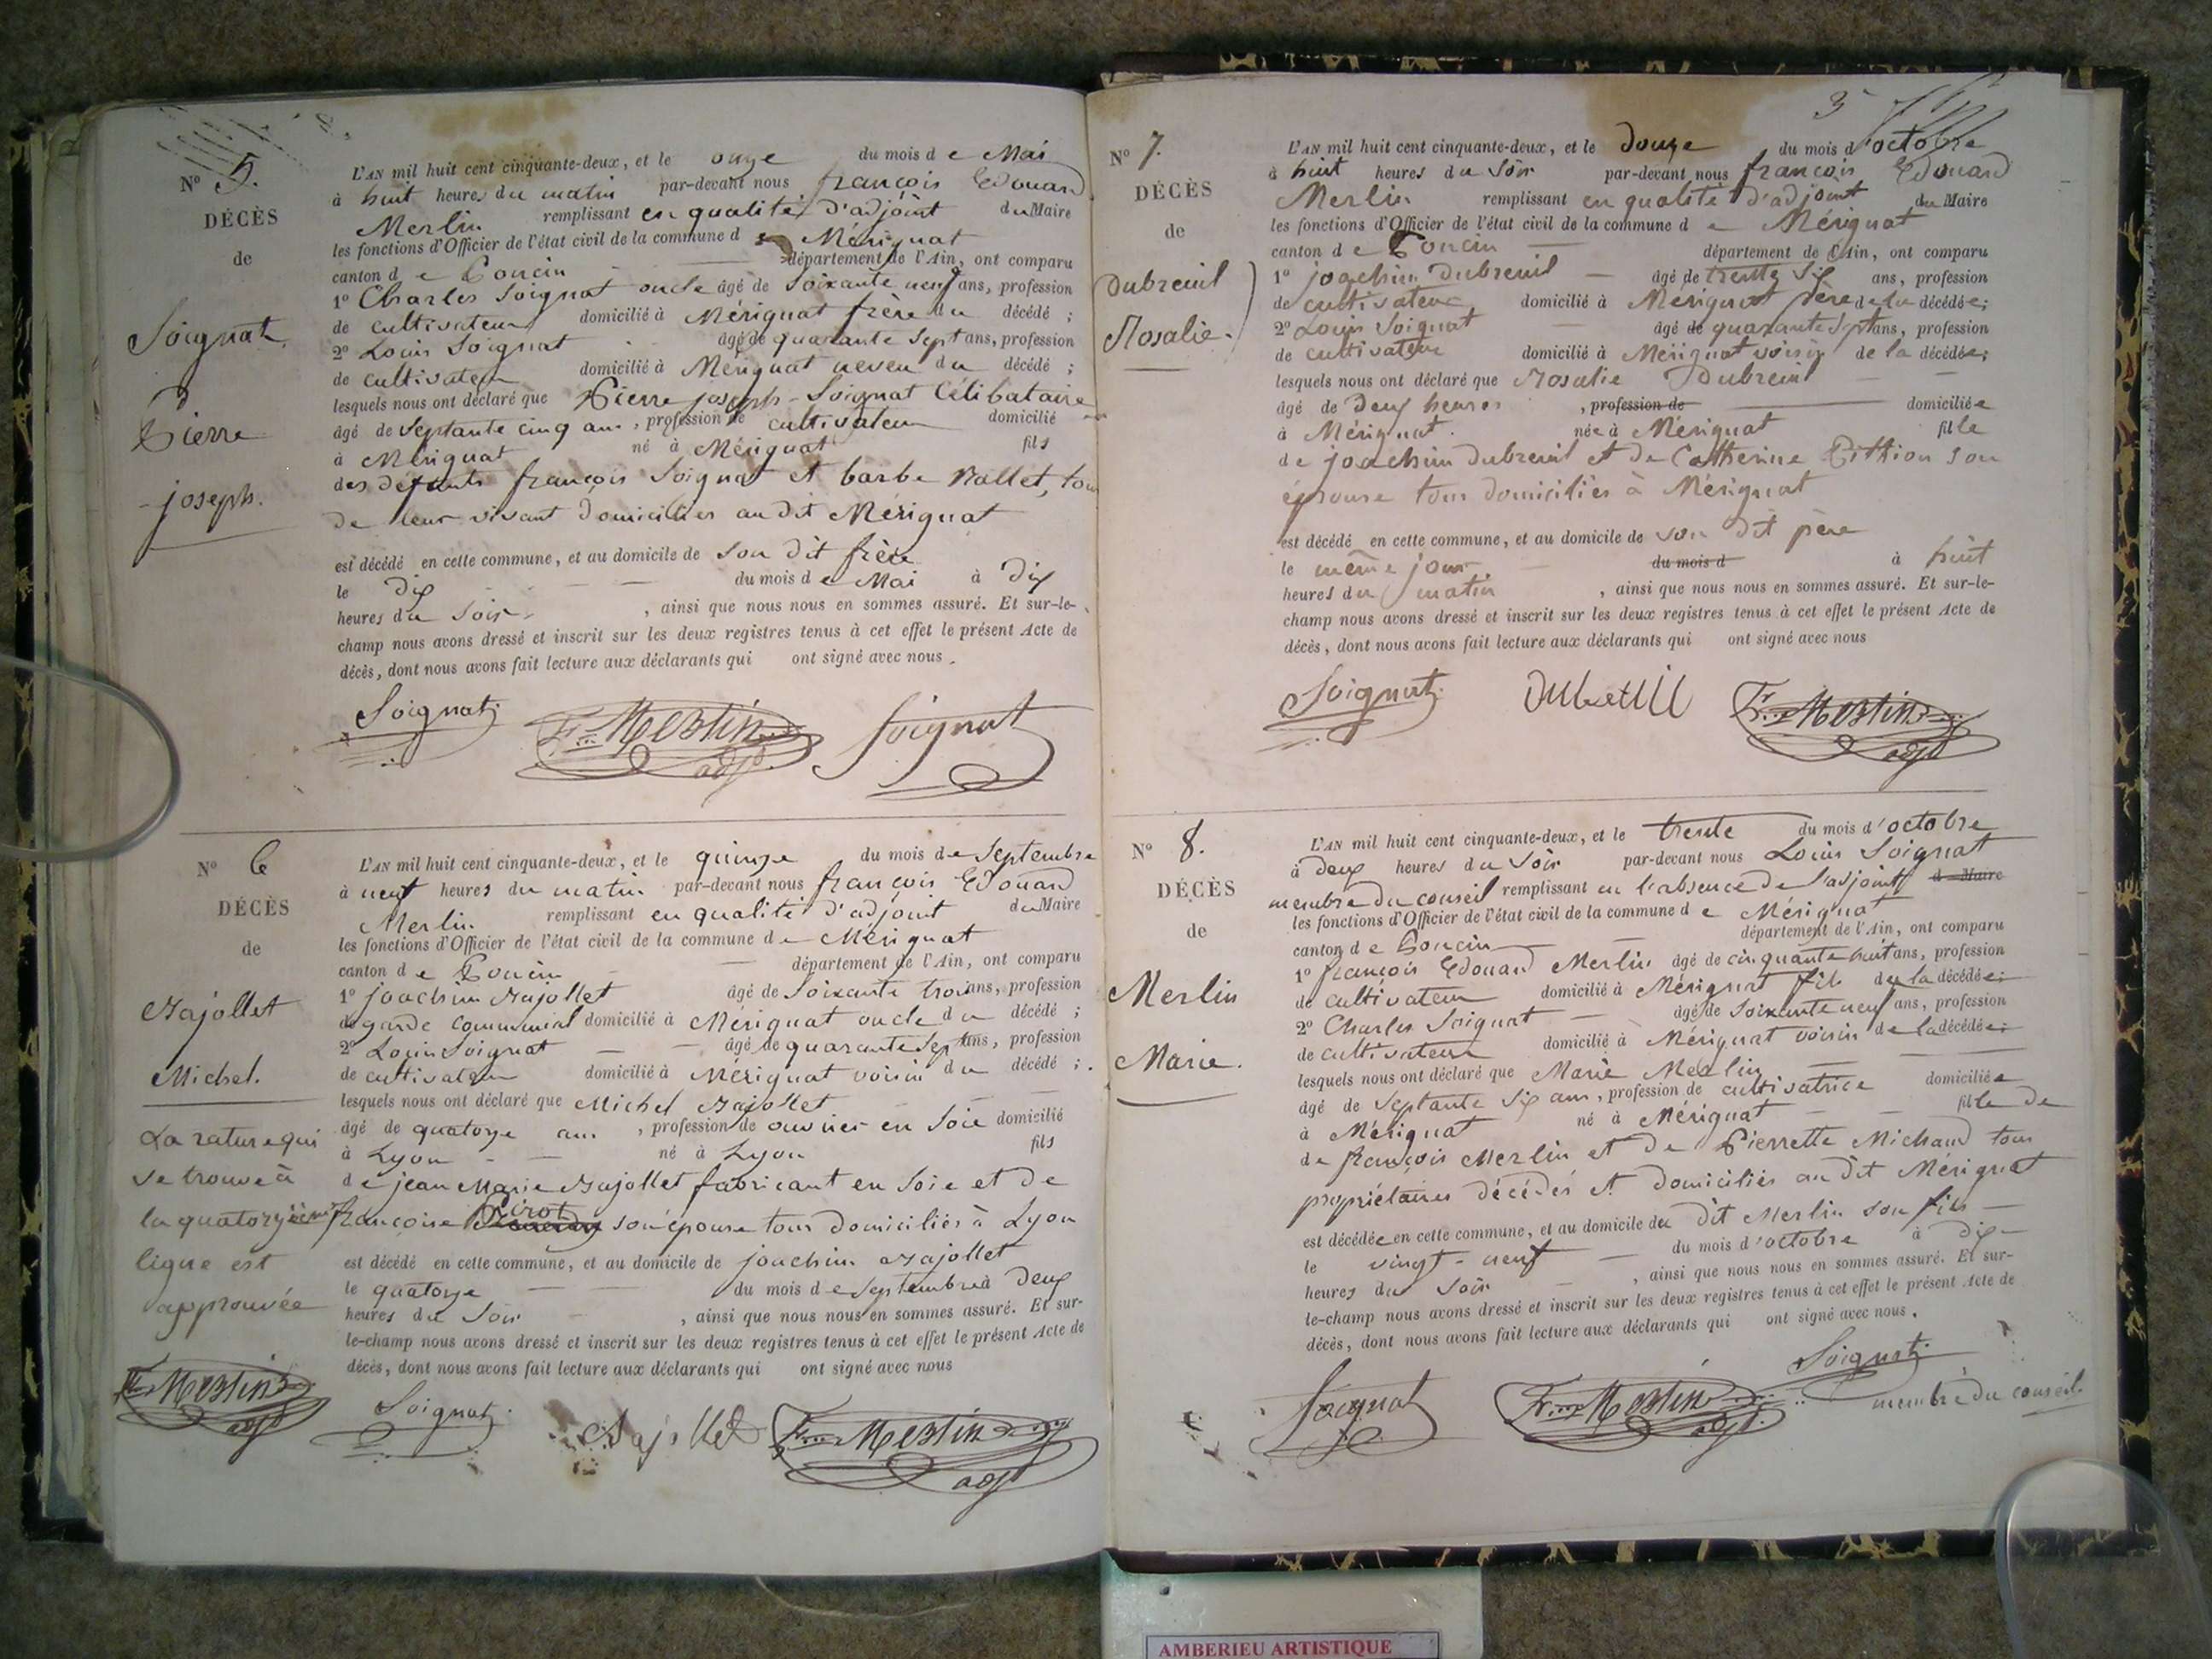 N° 5.
DÉCÈS
de
Soignat
Pierre
joseph.
L'AN mil huit cent cinquante-deux, et le onze du mois de Mai
à huit heures du matin par-devant nous françois Edouard
Merlin remplissant en qualité d'adjoint du Maire
les fonctions d'Officier de l'état civil de la commune de Mérignat
canton de Poncin département de l'Ain, ont comparu
1° Charles Soignat oncle âgé de Soixante neuf ans, profession
de cultivateur domicilié à Mérignat frère du décédé ;
2° Louis Soignat âgé de quarante Sept ans, profession
de cultivateur domicilié à Mérignat neveu du décédé ;
lesquels nous ont déclaré que Pierre joseph Soignat Célibataire
âgé de Septante cinq ans, profession de cultivateur domicilié
à Mérignat né à Mérignat fils
des défunts françois Soignat et barbe Nallet, tous
de leur vivant domiciliés au dit Mérignat
est décédé en cette commune, et au domicile de son dit frère
le dix du mois de Mai à dix
heures du Soir, ainsi que nous nous en sommes assuré. Et sur-le-
champ nous avons dressé et inscrit sur les deux registres tenus à cet effet le présent Acte de
décès, dont nous avons fait lecture aux déclarants qui ont signé avec nous.
Soignat Fr. Merlin adjt Soignat
N° 6
DÉCÈS
de
Bajollet
Michel.
La rature qui
se trouve à
la quatorzième
ligne est
approuvée
Fr. Merlin adjt
L'AN mil huit cent cinquante-deux, et le quinze du mois de Septembre
à neuf heures du matin par-devant nous françois Edouard
Merlin remplissant en qualité d'adjoint du Maire
les fonctions d'Officier de l'état civil de la commune de Mérignat
canton de Poncin département de l'Ain, ont comparu
1° joachim Bajollet âgé de Soixante trois ans, profession
de garde communal domicilié à Mérignat oncle du décédé ;
2° Louis Soignat âgé de quarante Sept ans, profession
de cultivateur domicilié à Mérignat voisin du décédé ;
lesquels nous ont déclaré que Michel Bajollet
âgé de quatorze ans, profession de ouvrier en Soie domicilié
à Lyon né à Lyon fils
de jean Marie Bajollet fabricant en Soie et de
françoise Pirot son épouse tous domiciliés à Lyon
est décédé en cette commune, et au domicile de joachim Bajollet
le quatorze du mois de Septembre à deux
heures du Soir, ainsi que nous nous en sommes assuré. Et sur-
le-champ nous avons dressé et inscrit sur les deux registres tenus à cet effet le présent Acte de
décès, dont nous avons fait lecture aux déclarants qui ont signé avec nous
Soignat Bajollet Fr. Merlin adjt
3
N° 7.
DÉCÈS
de
Dubreuil
Rosalie.
L'AN mil huit cent cinquante-deux, et le douze du mois d'octobre
à huit heures du Soir par-devant nous françois Edouard
Merlin remplissant en qualité d'adjoint du Maire
les fonctions d'Officier de l'état civil de la commune de Mérignat
canton de Poncin département de l'Ain, ont comparu
1° joachim Dubreuil âgé de trente Six ans, profession
de cultivateur domicilié à Mérignat père de la décédée;
2° Louis Soignat âgé de quarante Sept ans, profession
de cultivateur domicilié à Mérignat voisin de la décédée;
lesquels nous ont déclaré que Rosalie Dubreuil
âgé de deux heures, profession de domiciliée
à Mérignat. née à Mérignat fille
de joachim Dubreuil et de Catherine Pittion son
épouse tous domiciliés à Mérignat
est décédé en cette commune, et au domicile de son dit père
le même jour du mois d à huit
heures du matin, ainsi que nous nous en sommes assuré. Et sur-le-
champ nous avons dressé et inscrit sur les deux registres tenus à cet effet le présent Acte de
décès, dont nous avons fait lecture aux déclarants qui ont signé avec nous
Soignat Dubreuil Fr. Merlin adjt
N° 8.
DÉCÈS
de
Merlin
Marie.
L'AN mil huit cent cinquante-deux, et le trente du mois d'octobre
à deux heures du Soir par-devant nous Louis Soignat
membre du conseil remplissant en l'absence de l'adjoint d Maire
les fonctions d'Officier de l'état civil de la commune de Mérignat
canton de Poncin département de l'Ain, ont comparu
1° françois Edouard Merlin âgé de cinquante huit ans, profession
de cultivateur domicilié à Mérignat fils de la décédée;
2° Charles Soignat âgé de Soixante neuf ans, profession
de cultivateur domicilié à Mérignat voisin de la décédée;
lesquels nous ont déclaré que Marie Merlin
âgé de Septante Six ans, profession de cultivatrice domiciliée
à Mérignat né à Mérignat fille de
de françois Merlin et de Pierrette Michaud tous
propriétaires décédés et domiciliés au dit Mérignat
est décédée en cette commune, et au domicile du dit Merlin son fils
le vingt-neuf du mois d'octobre à dix
heures du Soir, ainsi que nous nous en sommes assuré. Et sur-
le-champ nous avons dressé et inscrit sur les deux registres tenus à cet effet le présent Acte de
décès, dont nous avons fait lecture aux déclarants qui ont signé avec nous.
Soignat Fr. Merlin adjt Soignat
membre du conseil.
AMBERIEU ARTISTIQUE